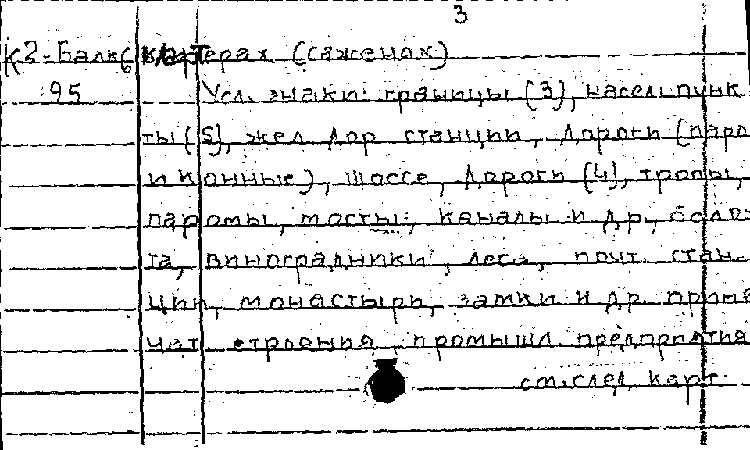 3
К2-Балк 6 картерах (саженах)
95 Усл. знаки: границы (3), насел. пунк
ты (5), жел дор станции, дороги (паро
и конные), шоссе, дороги (4), тропы,
паромы, мосты, каналы и др, боло-
та, виноградники, леса, почт стан-
ции, монастыри, замки и др приме
чат строения промышл предприятия
см. след карт.